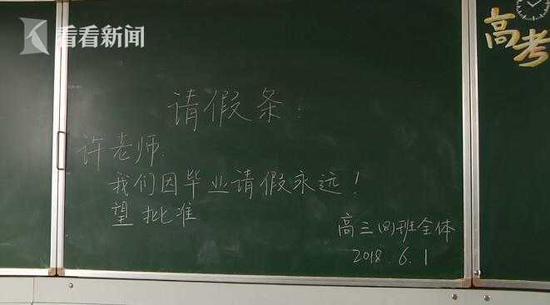 看看新闻
高考
请假条:
许老师
我们因毕业请假永远!
望批准
高三(8)班全体
2018.6.1